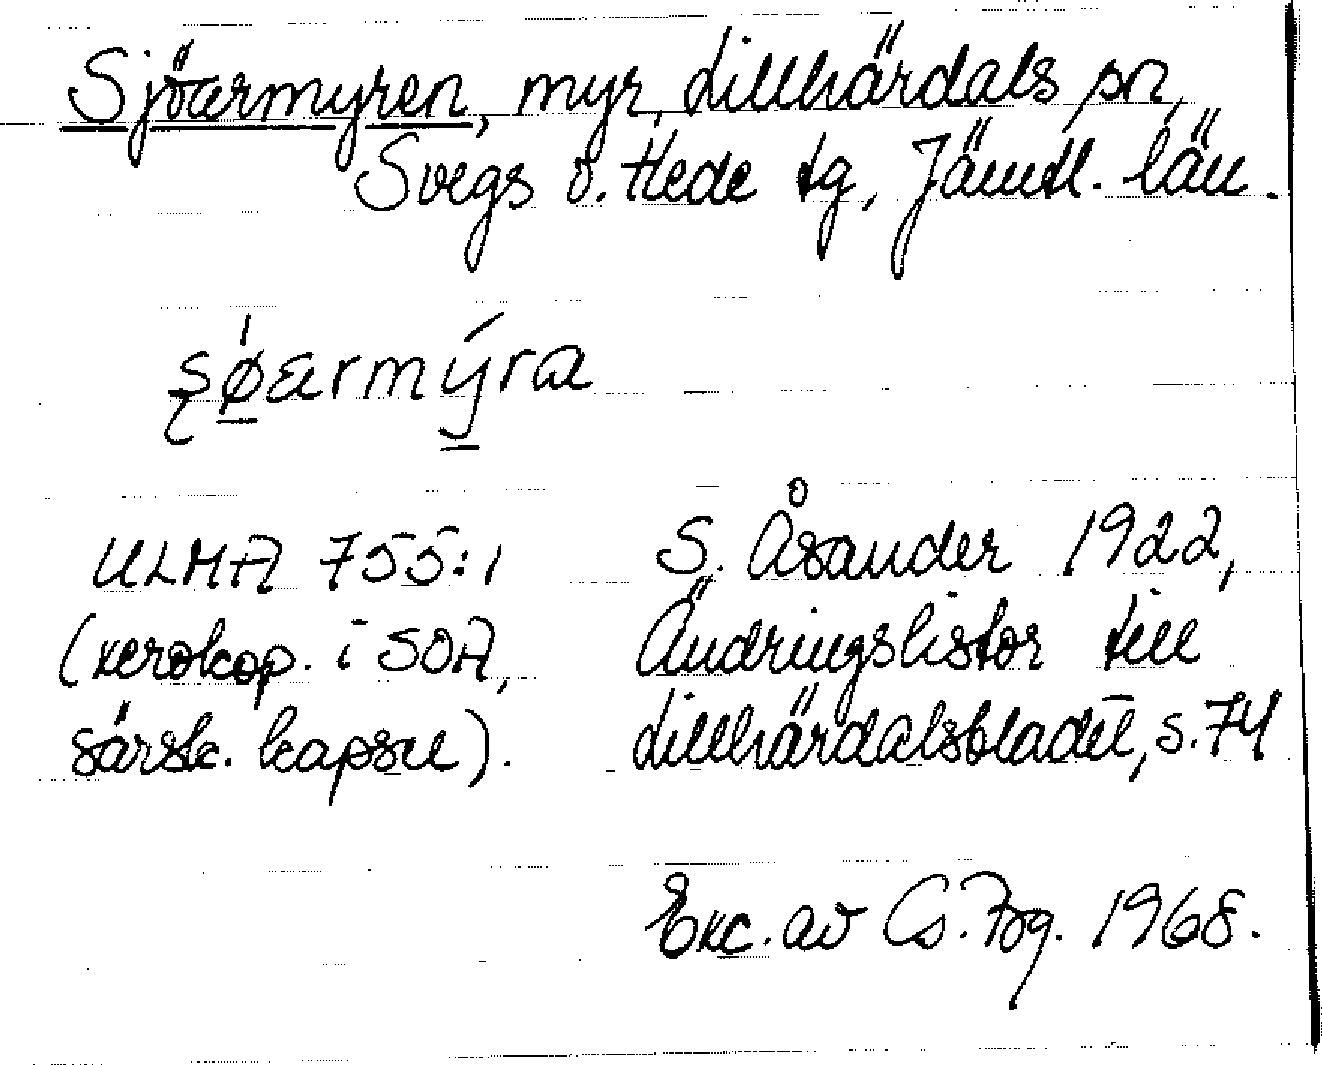 Sjöarmyren, myr, Lillhärdals sn,
Svegs o. Hede tg, Jämtl. län.
şǿ̱ærmý̱ra
ULMA 755:1
(xerokop. i SOA,
särsk. kapsel).
S. Åsander 1922,
Ändringslistor till
Lillhärdalsbladet, s. 74
Exc. av 1968.